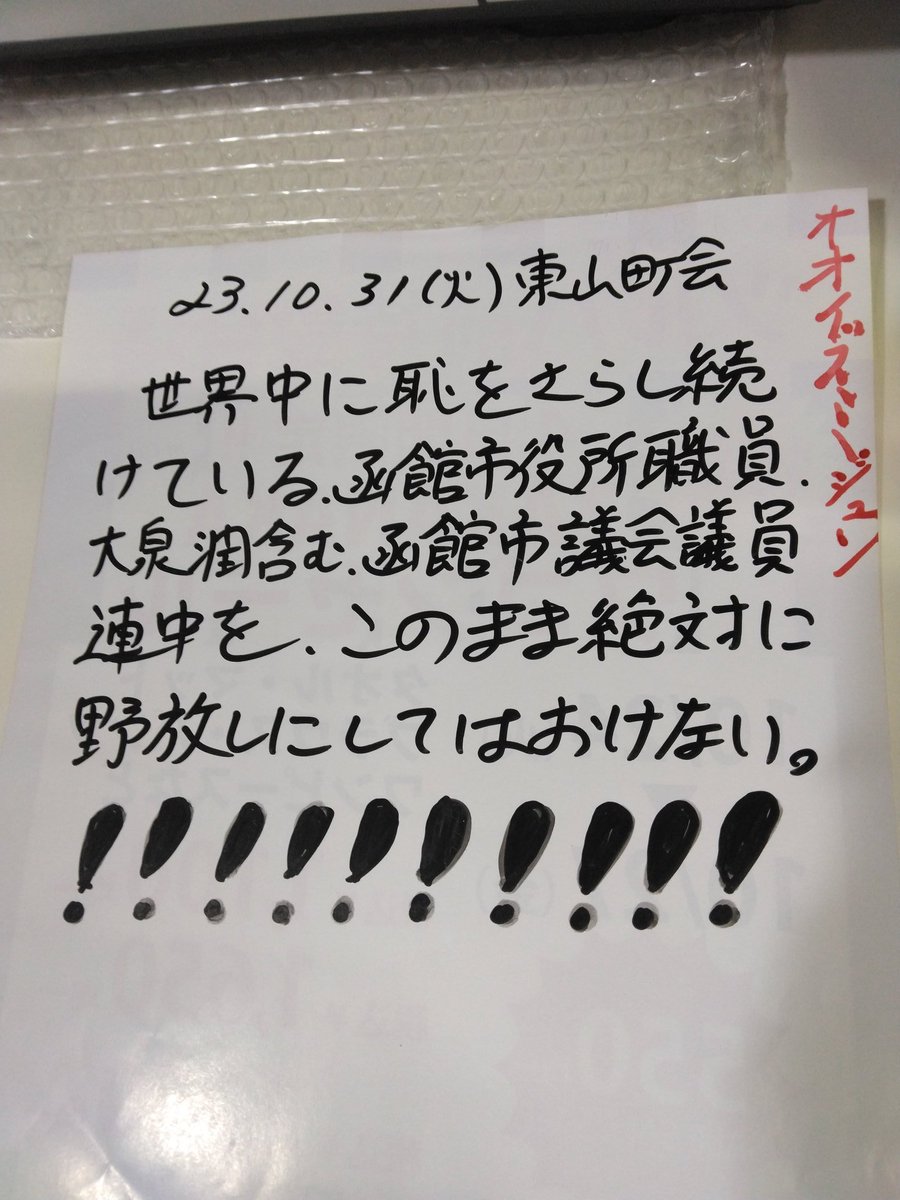 23.10.31(火)東山町会
世界中に恥をさらし続
けている、函館市役所職員、
大泉潤含む、函館市議会議員
連中を、このまま絶対に
野放しにしてはおけない。
!!!!!!!!!!
オオイズミ・ジュン
タオル・マット
ワンピースなど